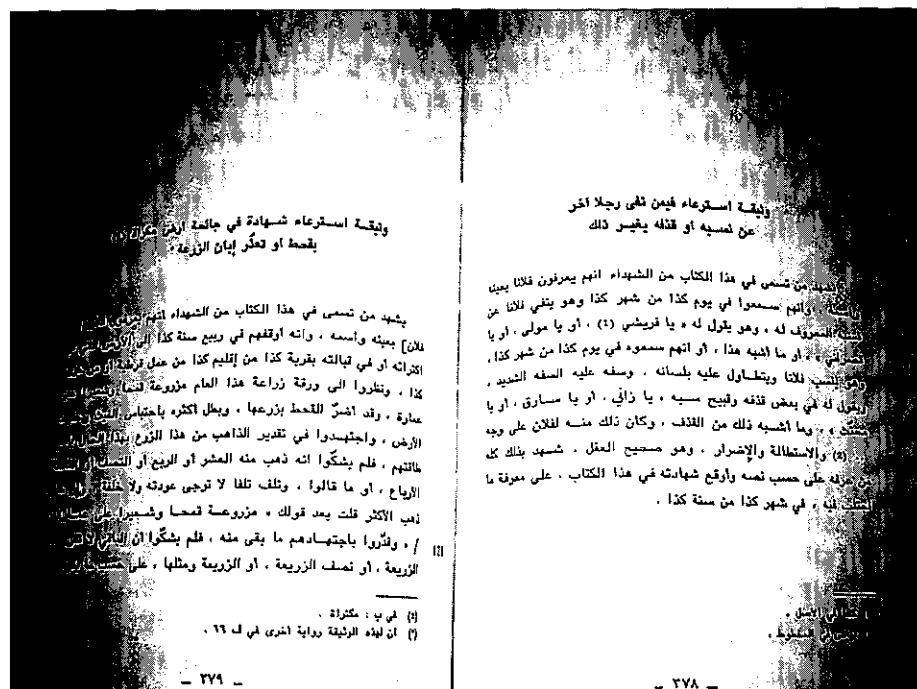 وثيقــة استــرعاء فيمن نفى رجلا آخر
عن نسبه أو قذفه بغيــر ذلك
يشهد من تسمى في هذا الكتاب من الشهداء انهم يعرفون فلانا بعينه
وانهم سمعوا في يوم كذا من شهر كذا وهو ينفي فلانا عن
المعروف له ، وهو يقول له « يا قريشي (٤) ، أو يا مولى ، أو يا
أو ما أشبه هذا ، أو انهم سمعوه في يوم كذا من شهر كذا ،
فلانا ويتطــاول عليه بلسانه ، وسفه عليه السفه الشديد ،
ويقول له في بعض قذفه وقبيح سبه « يا زاني ، أو يا ســارق ، أو يا
وما أشــبه ذلك من القذف ، وكان ذلك منــه لفلان على وجه
(٥) والاستطالة والإضرار ، وهو صحيح العقل . شــهد بذلك كله
من عرفه على حسب نصه وأوقع شهادته في هذا الكتاب ، على معرفة ما
فيه ، في شهر كذا من سنة كذا .
الأصل .
المخطوط .
ــ ٣٧٨ ــ
وثيقــة استــرعاء شــهادة في جائحة أرض
بقحط أو تعذّر إبان الزرعة .
يشهد من تسمى في هذا الكتاب من الشهداء انهم يعرفون
فلان] بعينه واسمه ، وانه أوقفهم في ربيع سنة كذا الى
اكترائه أو في قبالته بقرية كذا من إقليم كذا من عمل قرطبة أو من
كذا ، ونظروا الى ورقة زراعة هذا العام مزروعة قمحا
عمارة ، وقد أضرّ القحط بزرعها ، وبطل أكثره باحتباس
الأرض ، واجتهــدوا في تقدير الذاهب من هذا الزرع بهذا الحال
طاقتهم ، فلم يشكّوا انه ذهب منه العشر أو الربع أو النصف أو
الأرباع ، أو ما قالوه ، وتلف تلفا لا ترجى عودته ولا خلفة
ذهب الأكثر قلت بعد قولك « مزروعــة قمحــا وشــعيرا على
/ ، وقدّروا باجتهــادهم ما بقى منه ، فلم يشكّوا ان الباقي
الزريعة ، أو نصف الزريعة ، أو الزريعة ومثلها ، على حسب
(٤) في ب : مكتراة .
(٢) ان لهذه الوثيقة رواية أخرى في ف ٦٦ .
ــ ٣٧٩ ــ